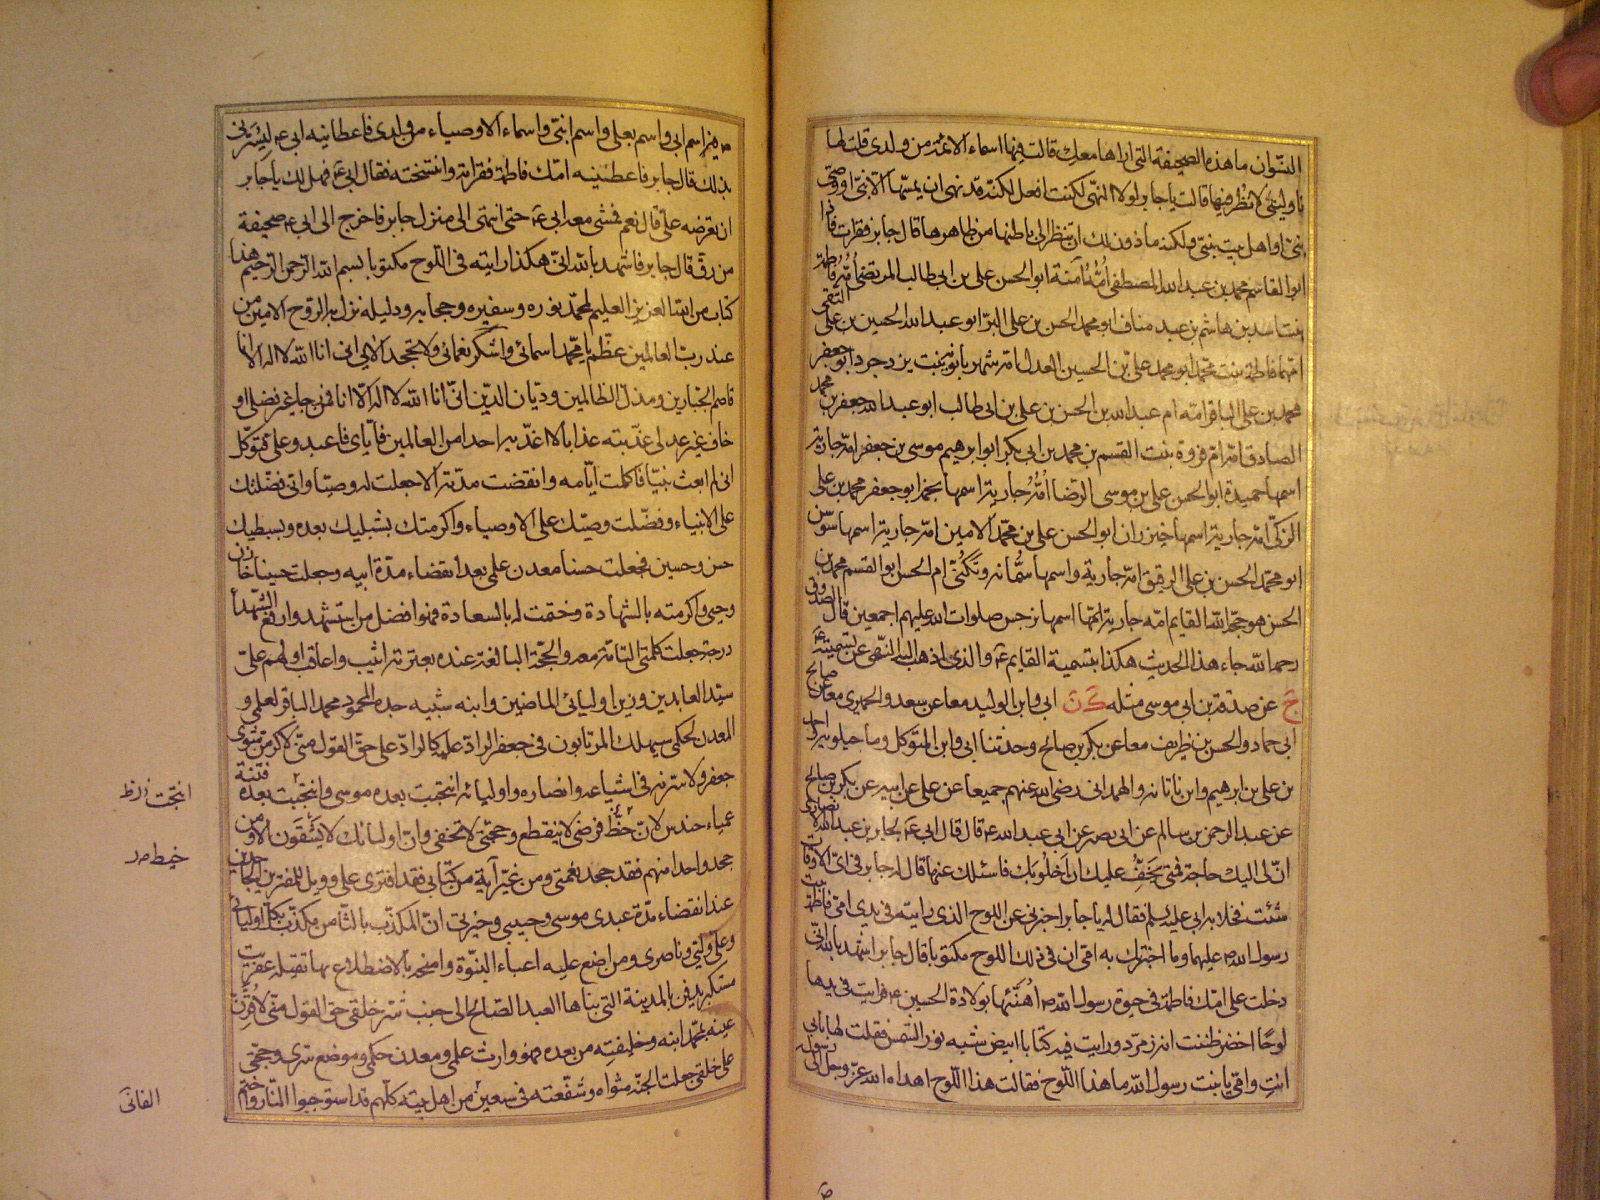 النسوان ما هذه الصحيفة التي اراها معك قالت فيها اسماء الائمة من ولدي قلت لها
ناوليني لانظر فيها قالت يا جابر لولا النهي لكنت افعل لكنه قد نهى ان يمسها الا نبي او وصي
نبي او اهل بيت نبي ولكنه ماذون لك ان تنظر الى باطنها من ظاهرها قال جابر فقرات فاذا
ابو القاسم محمد بن عبد الله المصطفى امه آمنة ابو الحسن علي بن ابي طالب المرتضى امه فاطمة
بنت اسد بن هاشم بن عبد مناف ابو محمد الحسن بن علي البر ابو عبد الله الحسين بن علي التقي
امهما فاطمة بنت محمد ابو محمد علي بن الحسين العدل امه شهربانويه بنت يزدجرد ابو جعفر
محمد بن علي الباقر امه ام عبد الله بن الحسن بن علي بن ابي طالب ابو عبد الله جعفر بن محمد
الصادق امه ام فروة بنت القسم بن محمد بن ابي بكر ابو ابرهيم موسى بن جعفر امه جارية
اسمها حميدة ابو الحسن علي بن موسى الرضا امه جارية اسمها نجمة ابو جعفر محمد بن علي
الزكي امه جارية اسمها خيزران ابو الحسن علي بن محمد الامين امه جارية اسمها سوسن
ابو محمد الحسن بن علي الرفيق امه جارية واسمها سمانه وتكنى ام الحسن ابو القسم محمد بن
الحسن هو حجة الله القايم امه جارية اسمها نرجس صلوات الله عليهم اجمعين قال الصدوق
رحمه الله جاء هذا الحديث هكذا بتسمية القايم ع والذي اذهب اليه النهي عن تسميته ع
ج عن صدقة بن ابي موسى مثله ك ن ابي وابن الوليد معا عن سعد والحميري معا عن صالح
ابي حماد والحسن بن ظريف معا عن بكر بن صالح وحدثنا ابي وابن المتوكل وماجيلويه واحمد
بن علي بن ابرهيم وابن ناتانه والهمداني رضي الله عنهم جميعا عن علي عن ابيه عن بكر بن صالح
عن عبد الرحمن بن سالم عن ابي بصير عن ابي عبد الله ع قال قال ابي ع لجابر بن عبد الله الانصاري
ان لي اليك حاجة فمتى يخف عليك ان اخلو بك فاسئلك عنها قال له جابر في اي الاوقات
شئت فخلا به ابي عليه السلم فقال له يا جابر اخبرني عن اللوح الذي رايته في يدي امي فاطمة بنت
رسول الله ص عليهما وما اخبرتك به امي ان في ذلك اللوح مكتوبا قال جابر اشهد بالله اني
دخلت على امك فاطمة في حيوة رسول الله ص اهنئها بولادة الحسين ع فرايت في يدها
لوحا اخضر ظننت انه زمرد ورايت فيه كتابا ابيض شبيه نور الشمس فقلت لها بابي
انت وامي يا بنت رسول الله ما هذا اللوح فقالت هذا اللوح اهداه الله عز وجل الى رسوله
ص فيه اسم ابي واسم بعلي واسم ابني واسماء الاوصياء من ولدي فاعطانيه ابي ع ليسرني
بذلك قال جابر فاعطتنيه امك فاطمة فقراته وانتسخته فقال ابي ع فهل لك يا جابر
ان تعرضه علي قال نعم فمشى معه ابي ع حتى انتهى الى منزل جابر فاخرج الى ابي ع صحيفة
من رق قال جابر فاشهد بالله اني هكذا رايته في اللوح مكتوبا بسم الله الرحمن الرحيم هذا
كتاب من الله العزيز العليم لمحمد نوره وسفيره وحجابه ودليله نزل به الروح الامين من
عند رب العالمين عظم يا محمد اسمائي واشكر نعمائي ولا تجحد الائي اني انا الله لا اله الا انا
قاصم الجبارين ومذل الظالمين وديان الدين اني انا الله لا اله الا انا فمن رجا غير فضلي او
خاف غير عدلي عذبته عذابا لا اعذبه احدا من العالمين فاياي فاعبد وعلي فتوكل
اني لم ابعث نبيا فاكملت ايامه وانقضت مدته الا جعلت له وصيا واني فضلتك
على الانبياء وفضلت وصيك على الاوصياء واكرمتك بشبليك بعده وبسبطيك
حسن وحسين فجعلت حسنا معدن علمي بعد انقضاء مدة ابيه وجعلت حسينا خازن
وحيي واكرمته بالشهادة وختمت له بالسعادة فهو افضل من استشهد وارفع الشهداء
درجة جعلت كلمتي التامة معه والحجة البالغة عنده بعترته اثيب واعاقب اولهم علي
سيد العابدين وزين اوليائي الماضين وابنه شبيه جده المحمود محمد الباقر لعلمي و
المعدن لحكمي سيهلك المرتابون في جعفر الراد عليه كالراد علي حق القول مني لاكرمن مثوى
جعفر ولاسرنه في اشياعه وانصاره واوليائه انتجبت بعده موسى وانتجبت بعده فتنة
عمياء حندس لان خيط فرضي لا ينقطع وحجتي لا تخفى وان اوليائك لا يشقون الا ومن
جحد واحدا منهم فقد جحد نعمتي ومن غير آية من كتابي فقد افترى علي وويل للمفترين الجاحدين
عند انقضاء مدة عبدي موسى وحبيبي وخيرتي ان المكذب بالثامن مكذب بكل اوليائي
وعلي وليي وناصري ومن اضع عليه اعباء النبوة وامنحه بالاضطلاع بها يقتله عفريت
مستكبر يدفن بالمدينة التي بناها العبد الصالح الى جنب شر خلقي حق القول مني لاقرن
عينه بمحمد ابنه وخليفته من بعده فهو وارث علمي ومعدن حكمي وموضع سري وحجتي
على خلقي جعلت الجنة مثواه وشفعته في سبعين من اهل بيته كلهم قد استوجبوا النار واختم
انتجت ن ظ
خيط ص